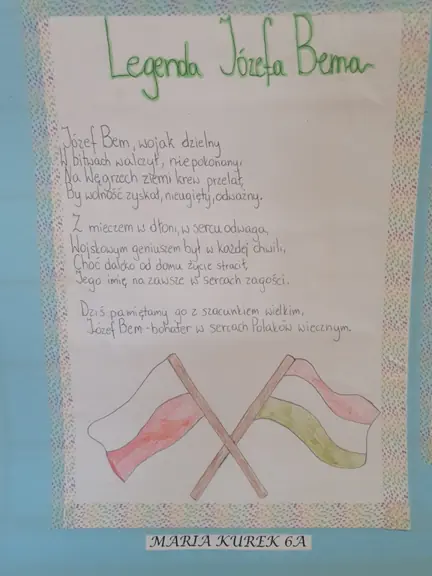 Legenda Józefa Bema
Józef Bem, wojak dzielny
W bitwach walczył, niepokonany,
Na Węgrzech ziemi krew przelał,
By wolność zyskał, nieugięty, odważny.
Z mieczem w dłoni, w sercu odwaga,
Wojskowym geniuszem był w każdej chwili,
Choć daleko od domu życie stracił,
Jego imię na zawsze w sercach zagości.
Dziś pamiętamy go z szacunkiem wielkim,
Józef Bem - bohater w sercach Polaków wiecznym.
MARIA KUREK 6A